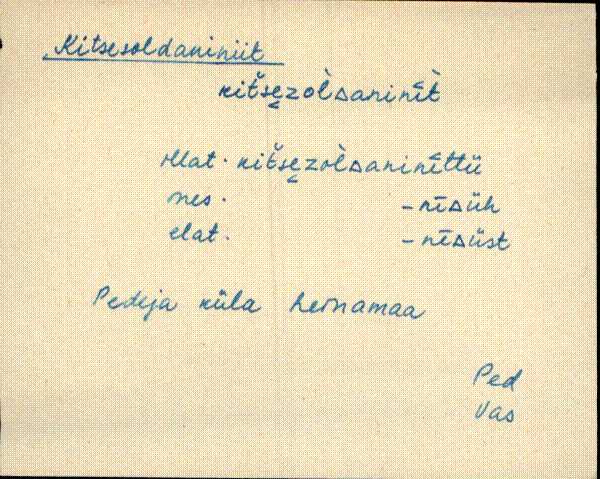 Kitsesoldaniniit
kìťšezol̀ᴅaninīt̀
illat. kìťšezol̀ᴅaninīttü
ines. -nīᴅüh
elat. -nīᴅüst
Pedeja küla heinamaa
Ped
Vas